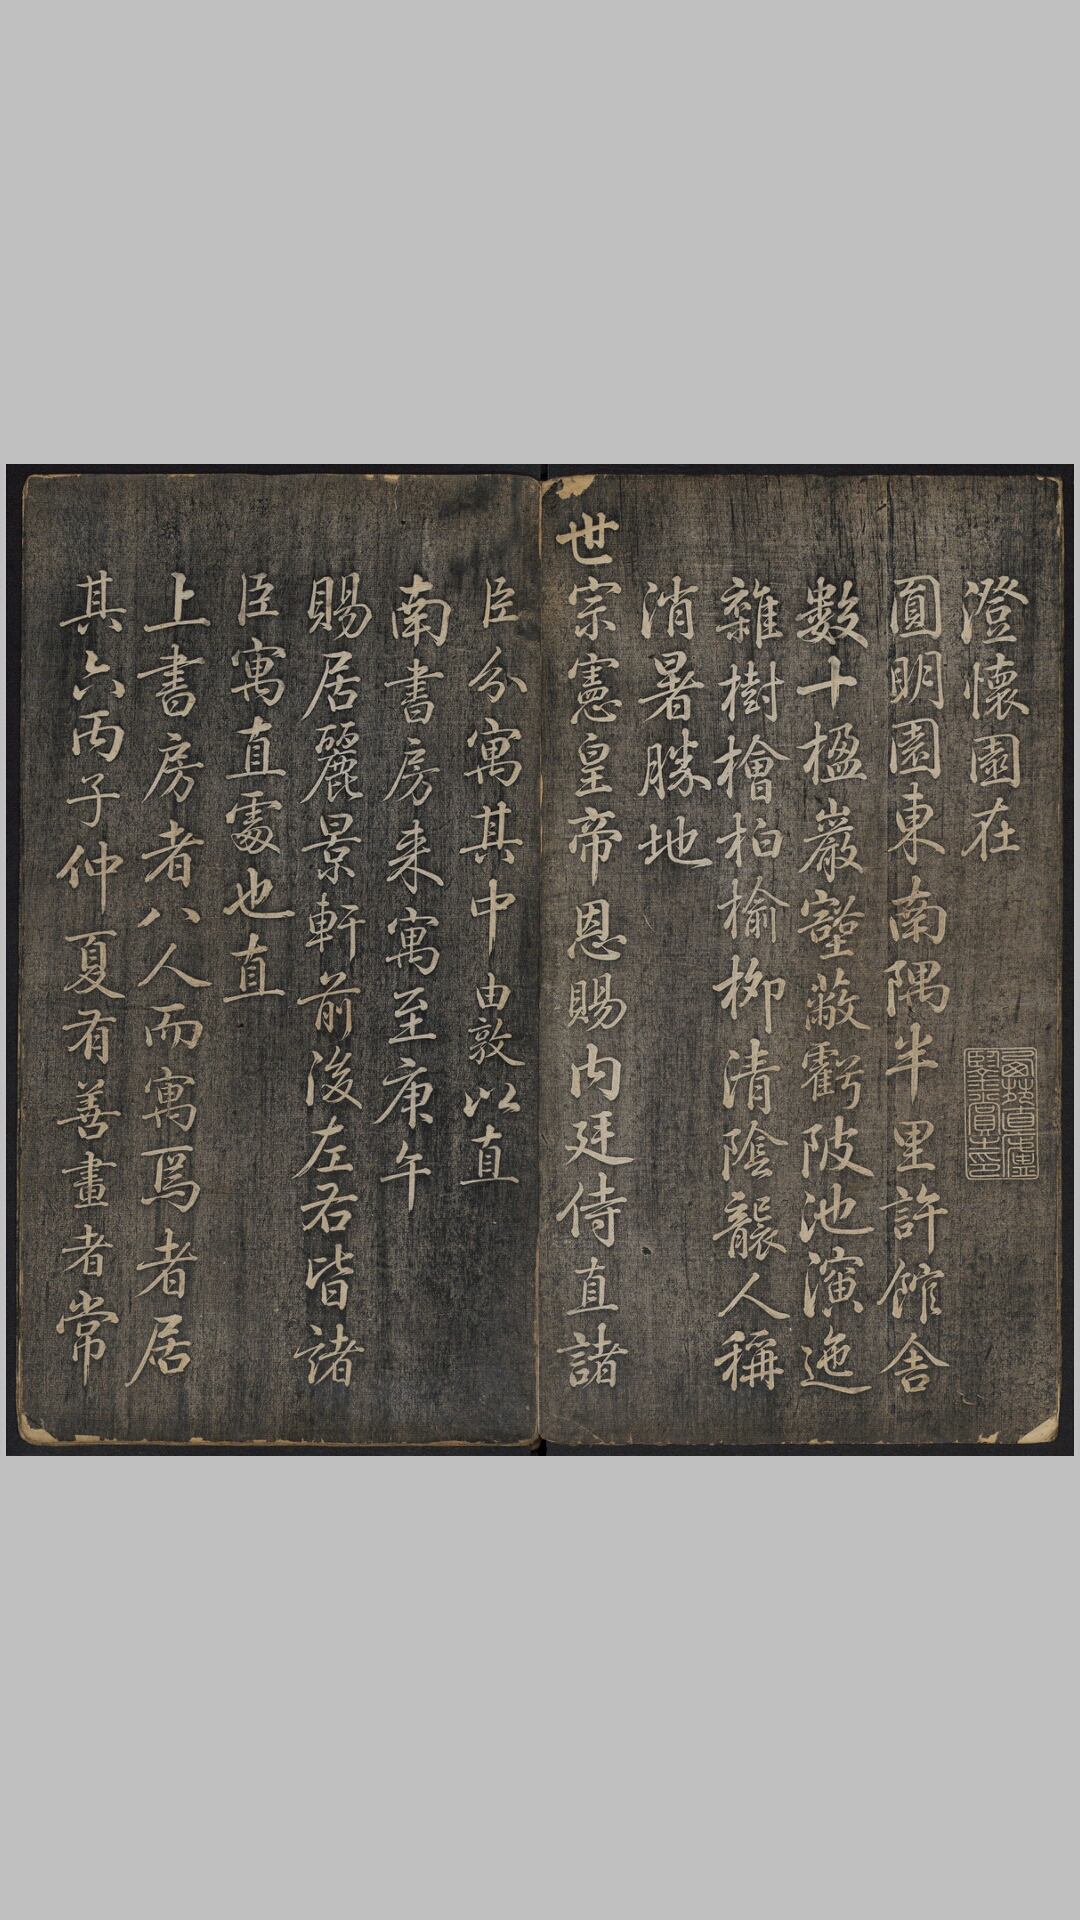 澄懷園在
圓明園東南隅半里許館舍
數十楹巖壑蔽虧陂池演迤
雜樹檜柏榆柳清陰襲人稱
消暑勝地
世宗憲皇帝恩賜內廷侍直諸
臣分寓其中由敦以直
南書房来寓至庚午
賜居麗景軒前後左右皆諸
臣寓直處也直
上書房者八人而寓焉者居
其六丙子仲夏有善畫者常